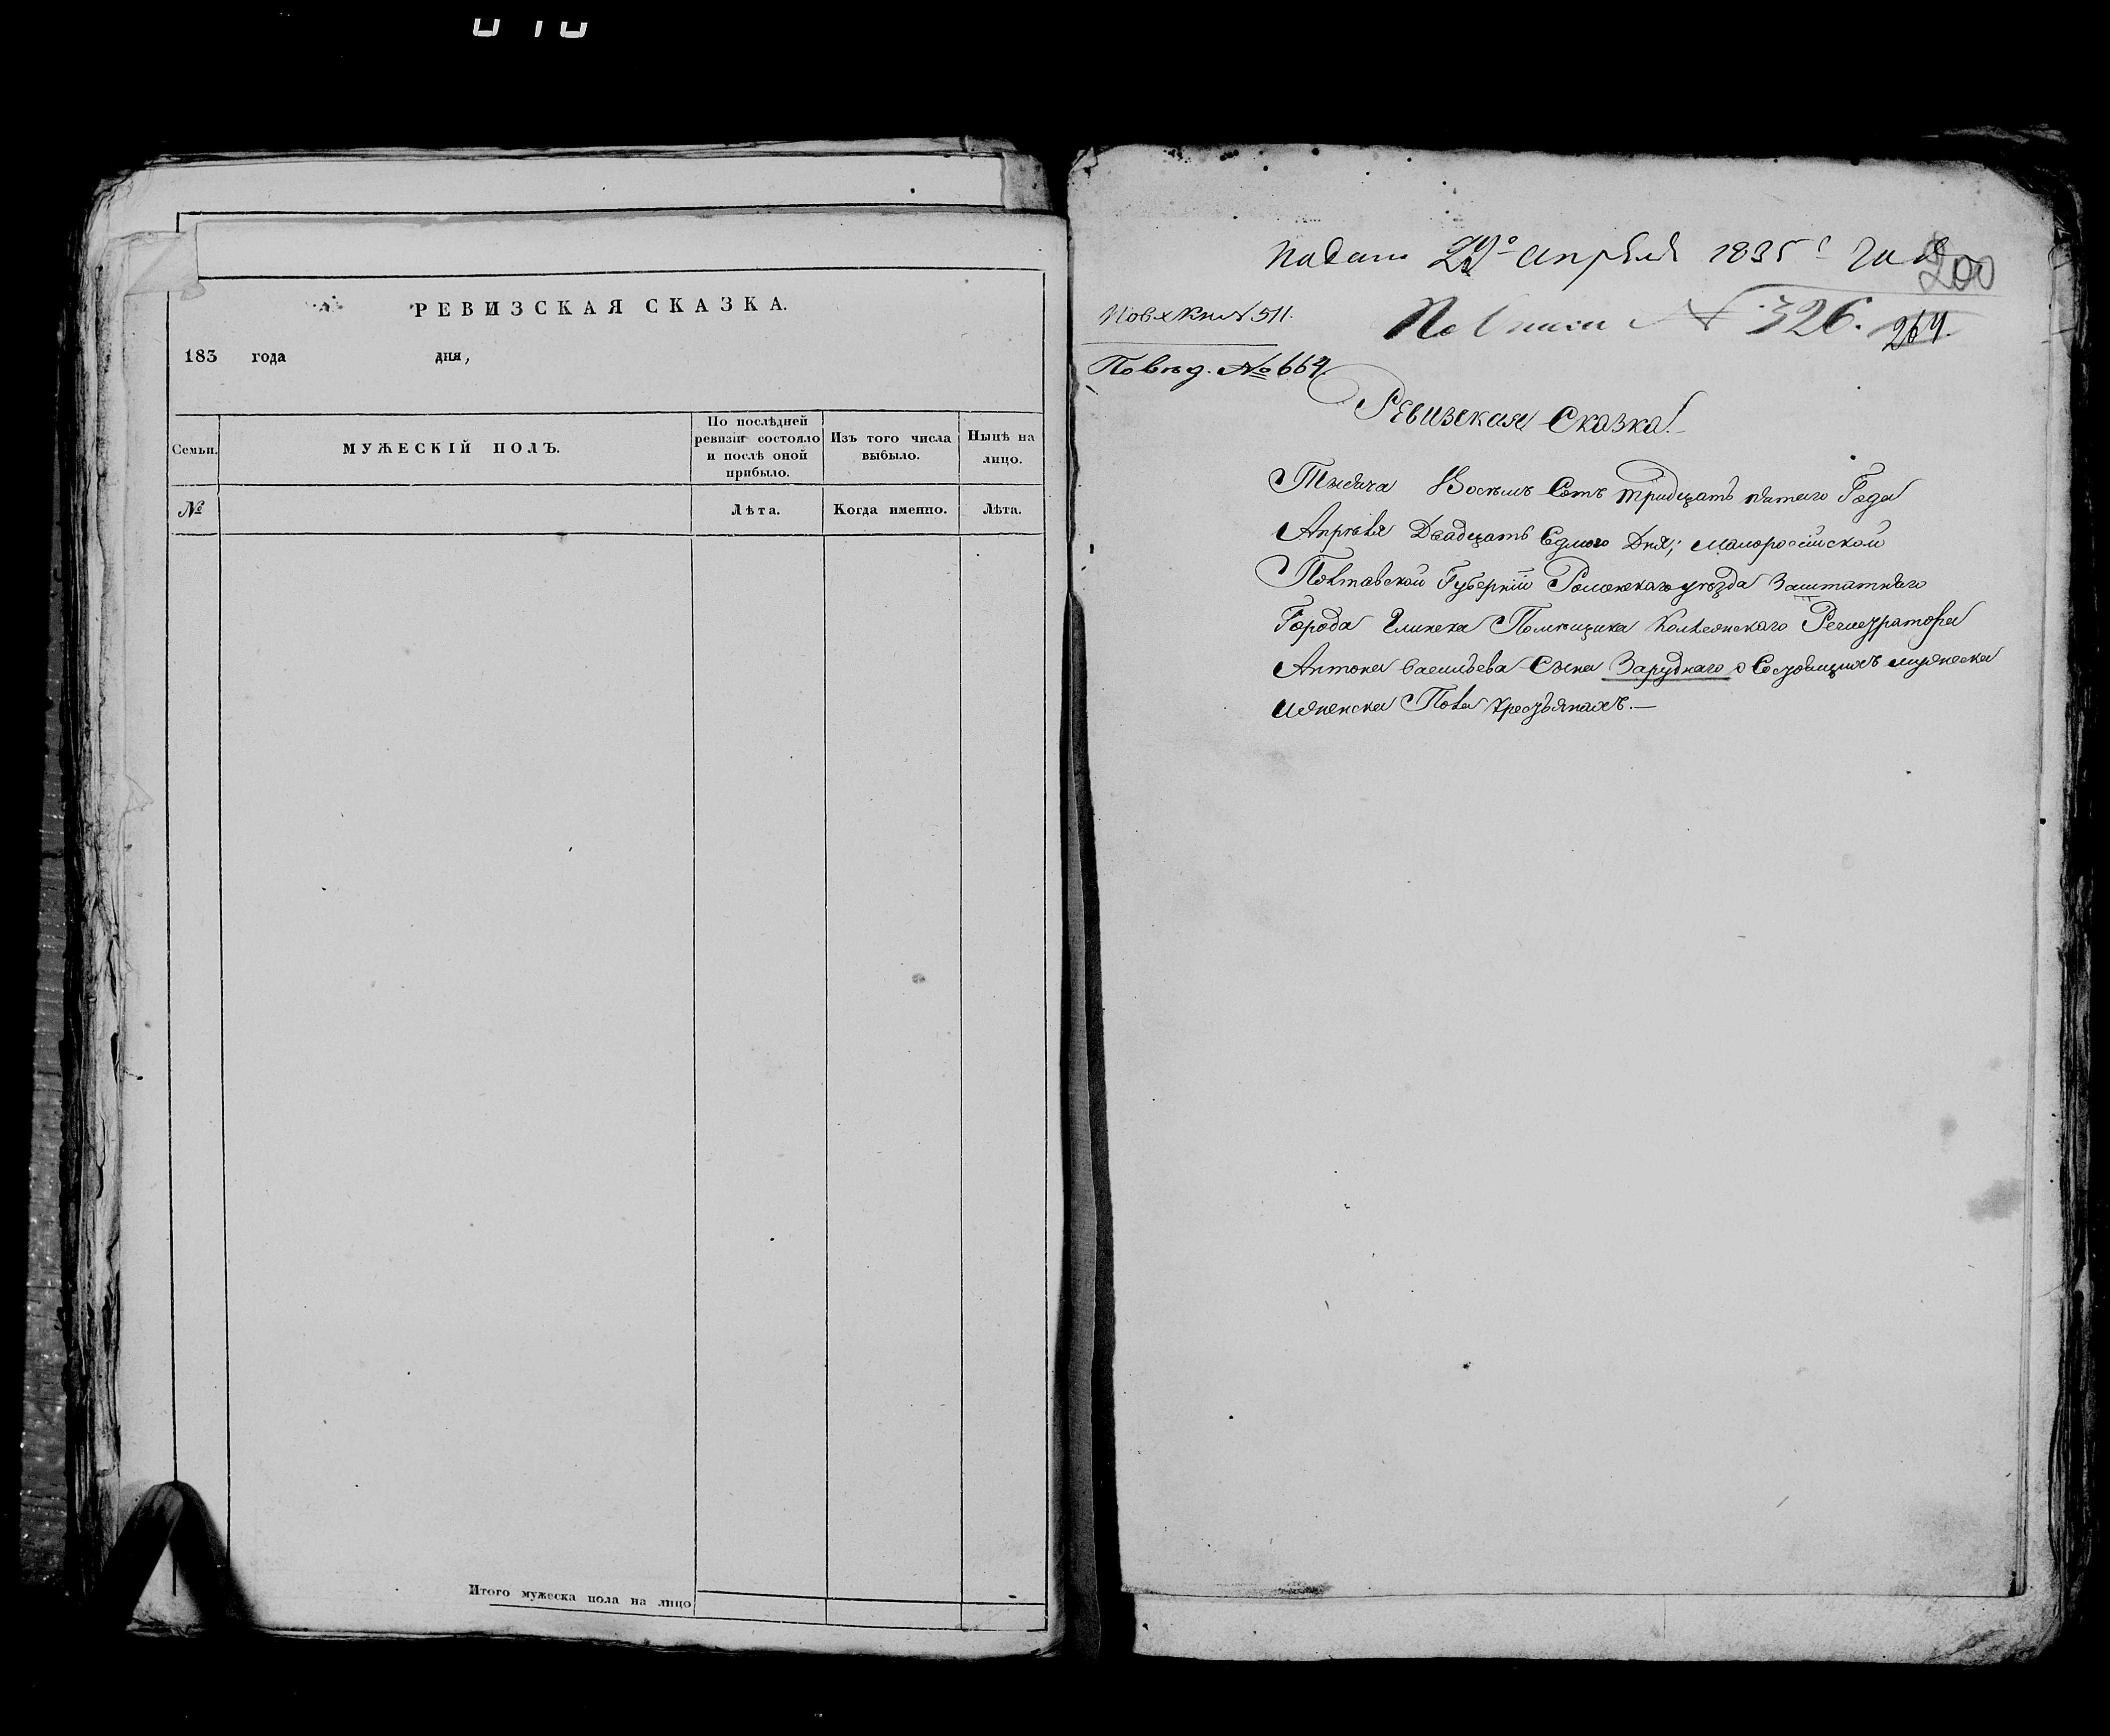 РЕВИЗСКАЯ СКАЗКА.
183 года дня,
Семьи.
МУЖЕСКІЙ ПОЛЪ.
По послѣдней
ревизіи состояло
и послѣ оной
прибыло.
Изъ того числа
выбыло.
Нынѣ на
лицо.
№
Лѣта.
Когда именно.
Лѣта.
Итого мужеска пола на лицо
Апреля 1835
200
№ 511.
№ 326.
264.
№ 664
Ревизская Сказка.
Тысяча Восемь Сотъ тридцать пятаго Года
Апрѣля Двадцать Едмого Дня, Малоросійской
Полтавской Губерніи Роменскаго уѣзда Заштатнаго
Города Глинска Помѣщика Колѣжскаго Регистратора
Антона Васильева Сына Заруднаго о Состоящихъ мужеска
и женска Пола крестьянахъ.—